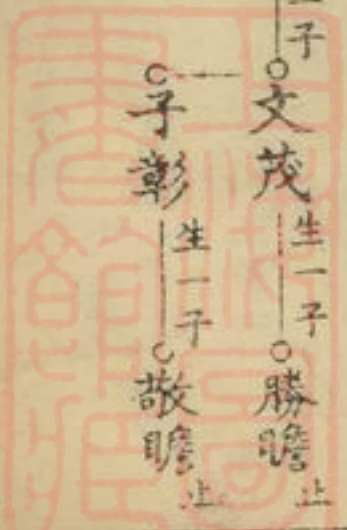 一子
文茂 生一子 勝瞻 止
子彰 生一子 敬瞻 止